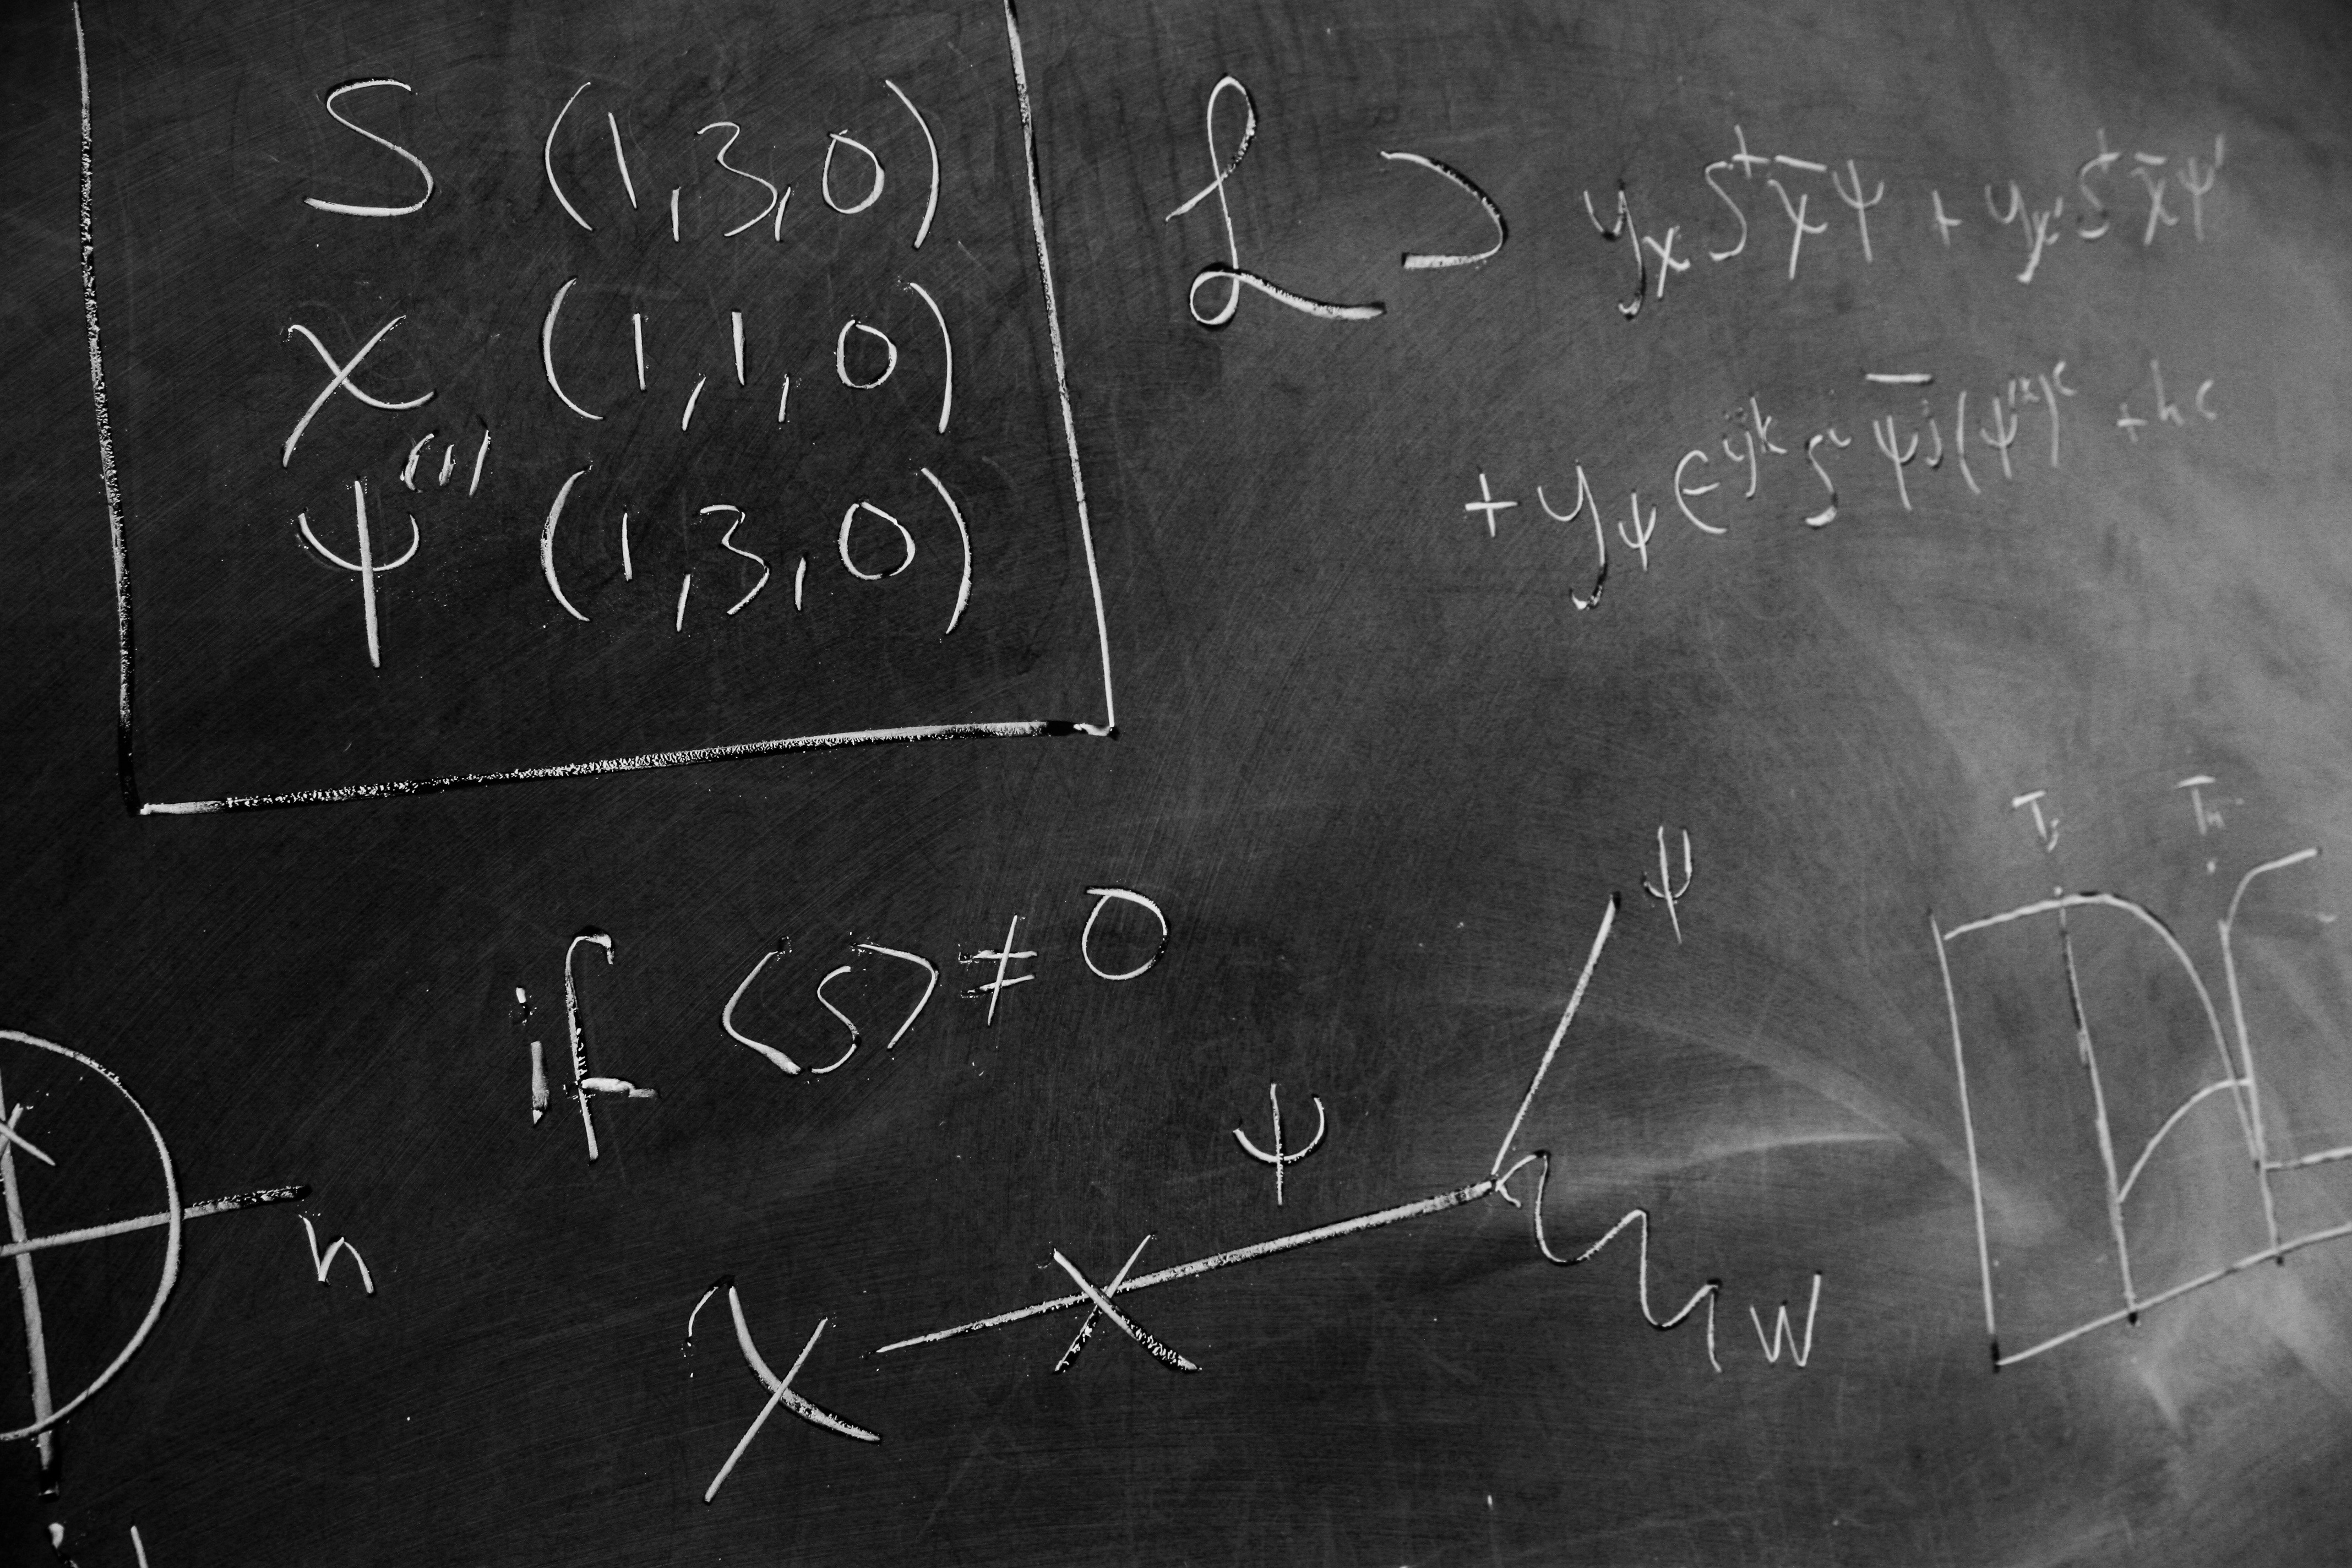 S (1,3,0)
χ (1,1,0)
ψ⁽′⁾ (1,3,0)
ℒ ⊃ y_χ S⁺ χ̄ ψ + y_χ' S⁺ χ̄ ψ'
+ y_ψ ε^{ijk} S^i ψ̄^j (ψ'^k)^c + h c
if ⟨S⟩ ≠ 0
ψ
ψ
χ
W
h